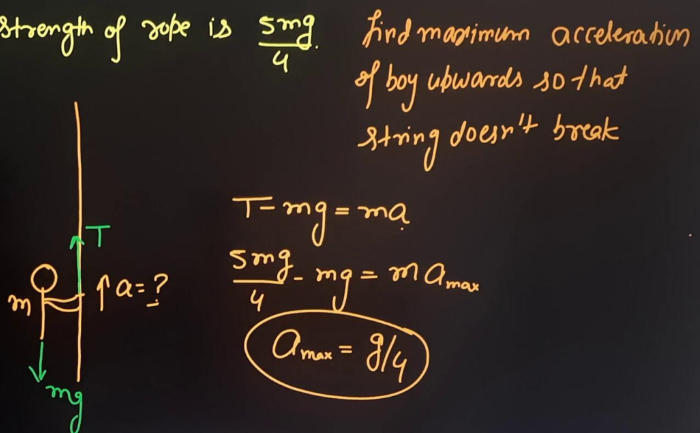 strength of rope is 5mg/4. find maximum acceleration
of boy upwards so that
string doesn't break
T
m
↑a=?
mg
T-mg=ma
5mg/4 - mg = m a max
a max = g/4